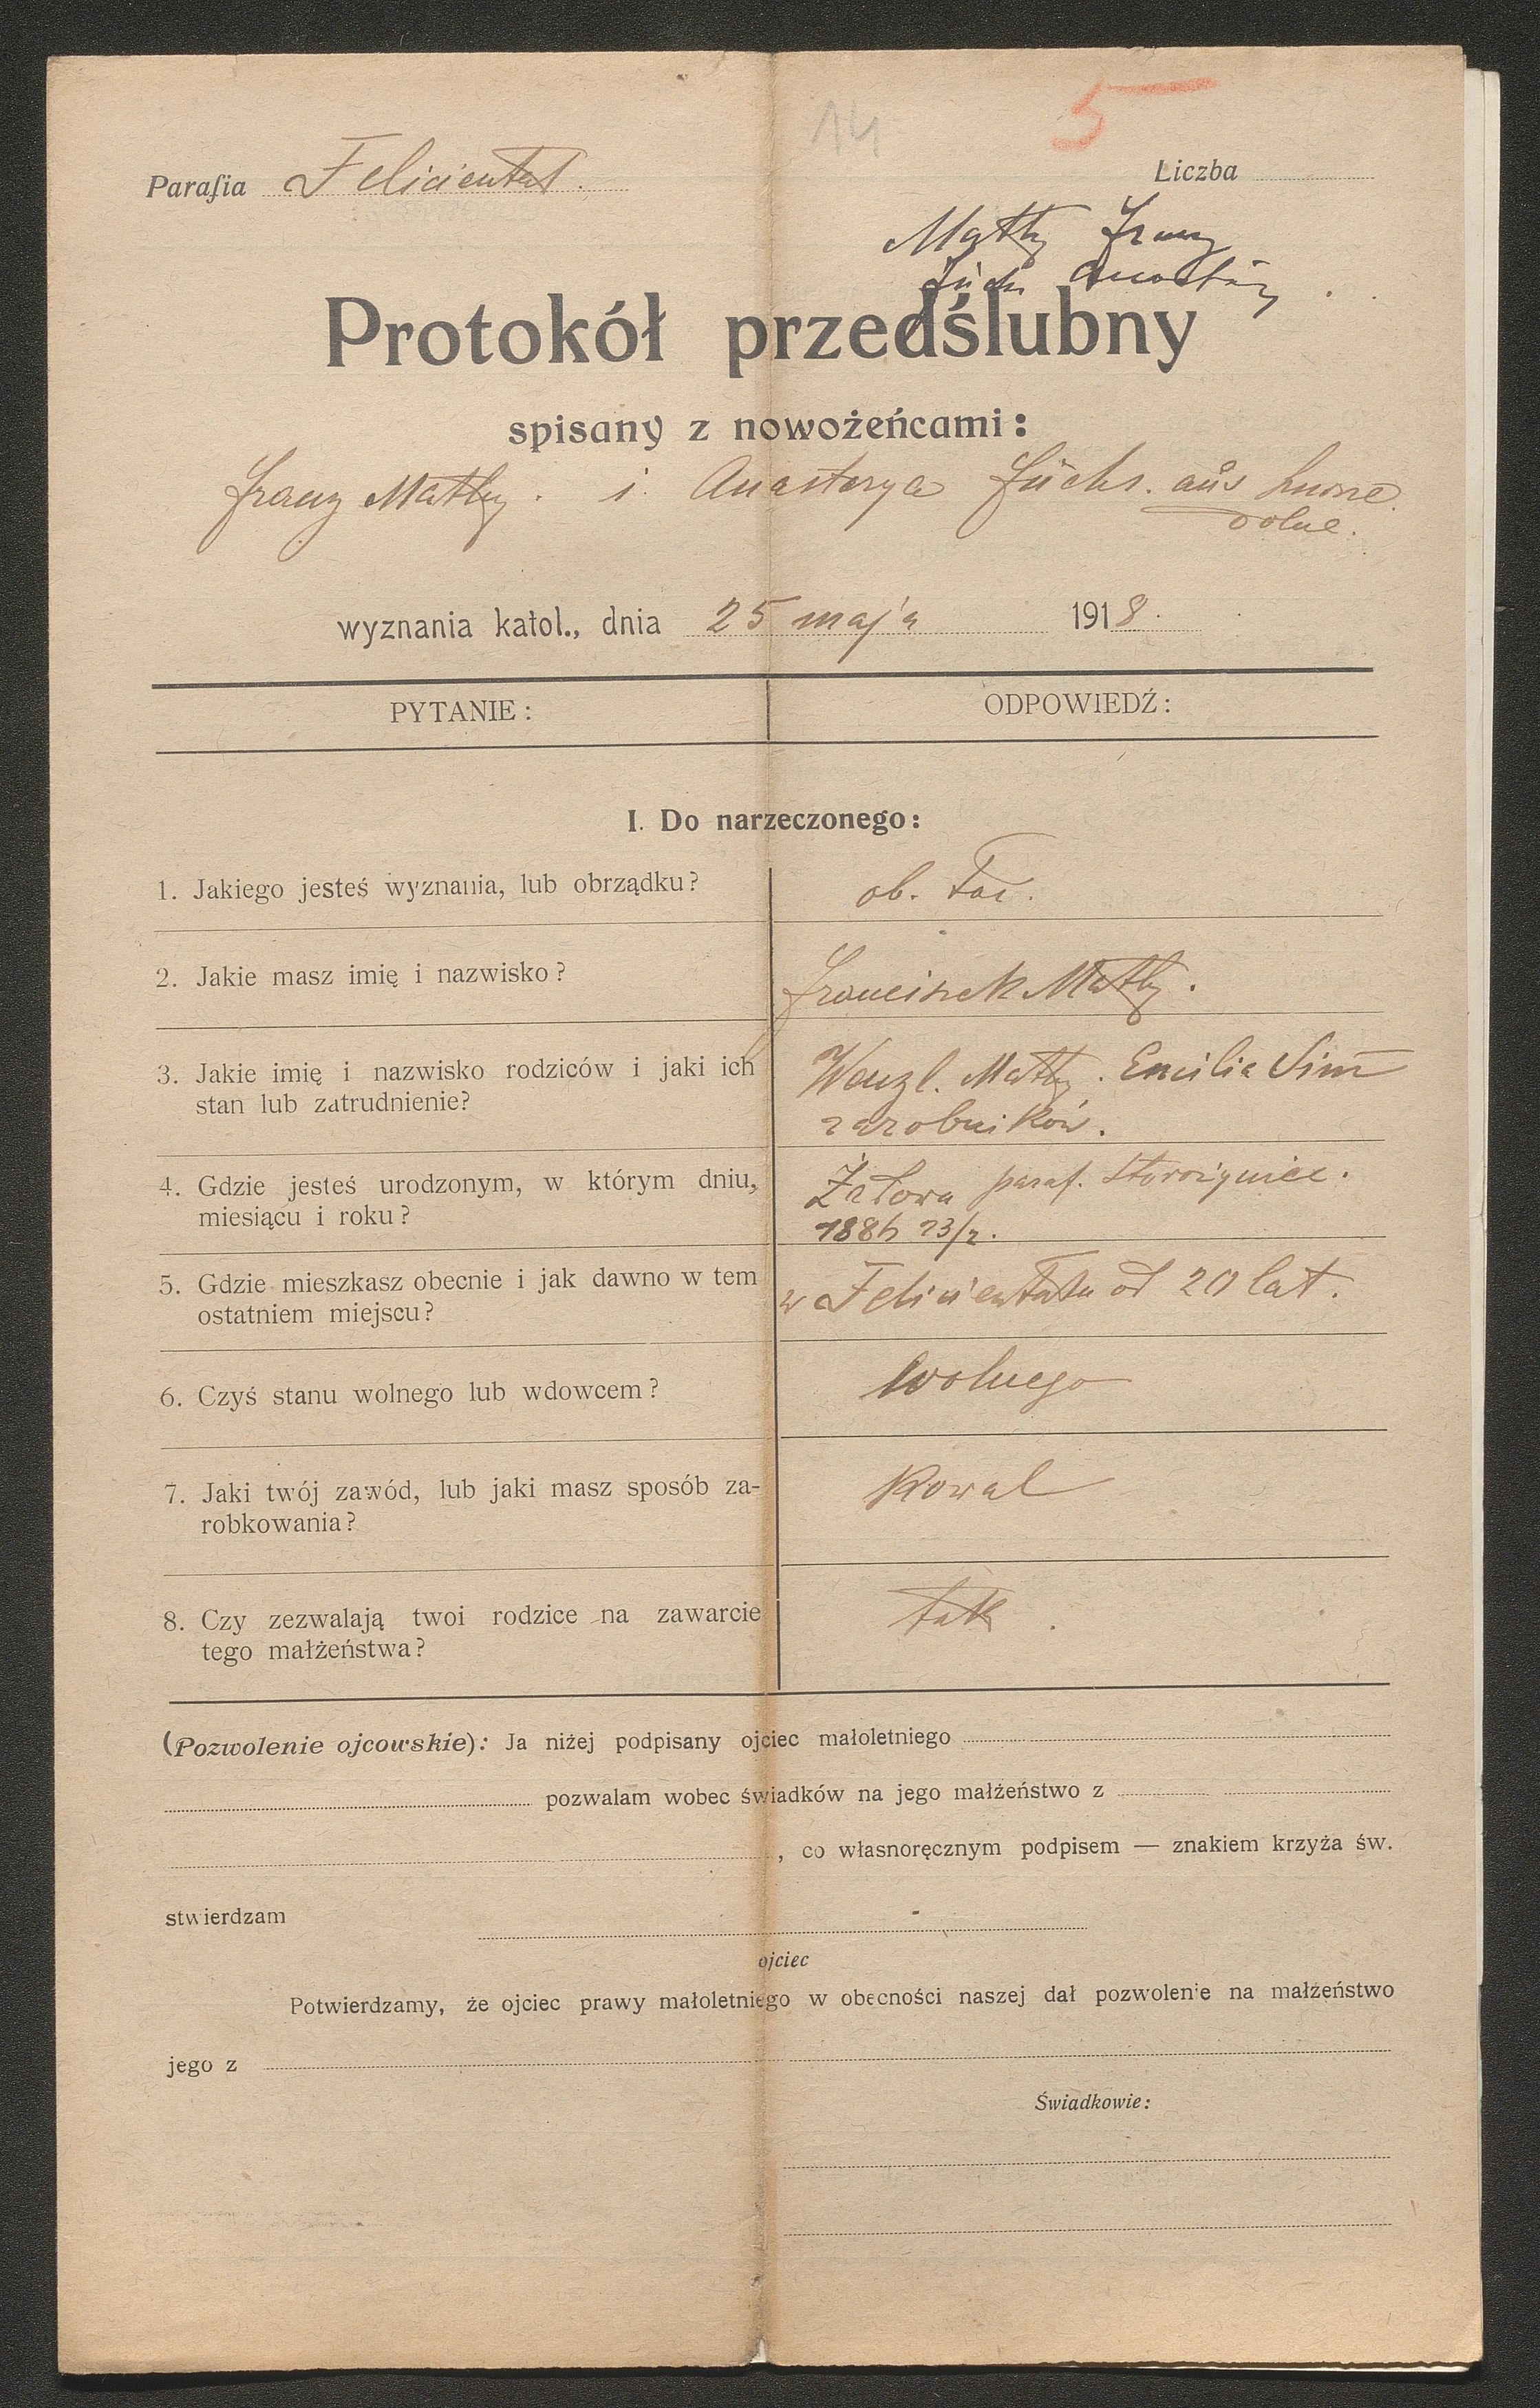 14 5
Parafia Felicienthal. Liczba
Matky Franz
Fuchs Anastazy
Protokół przedślubny
spisany z nowożeńcami:
Franz Matky. i. Anastazya Fuchs. aus
dolne.
wyznania katol., dnia 25 maja 1918.
PYTANIE: ODPOWIEDŹ:
I. Do narzeczonego:
1. Jakiego jesteś wyznania, lub obrządku? ob. łac.
2. Jakie masz imię i nazwisko? Franciszek Matky.
3. Jakie imię i nazwisko rodziców i jaki ich Wenzl. Matky. Emilia
stan lub zatrudnienie? zarobników.
4. Gdzie jesteś urodzonym, w którym dniu, paraf.
miesiącu i roku?
5. Gdzie mieszkasz obecnie i jak dawno w tem w Felicienthalu od 20 lat.
ostatniem miejscu?
6. Czyś stanu wolnego lub wdowcem? wolnego
7. Jaki twój zawód, lub jaki masz sposób za- Kowal
robkowania?
8. Czy zezwalają twoi rodzice na zawarcie tak.
tego małżeństwa?
(Pozwolenie ojcowskie): Ja niżej podpisany ojciec małoletniego
pozwalam wobec świadków na jego małżeństwo z
, co własnoręcznym podpisem — znakiem krzyża św.
stwierdzam
ojciec
Potwierdzamy, że ojciec prawy małoletniego w obecności naszej dał pozwolenie na małżeństwo
jego z
Świadkowie: